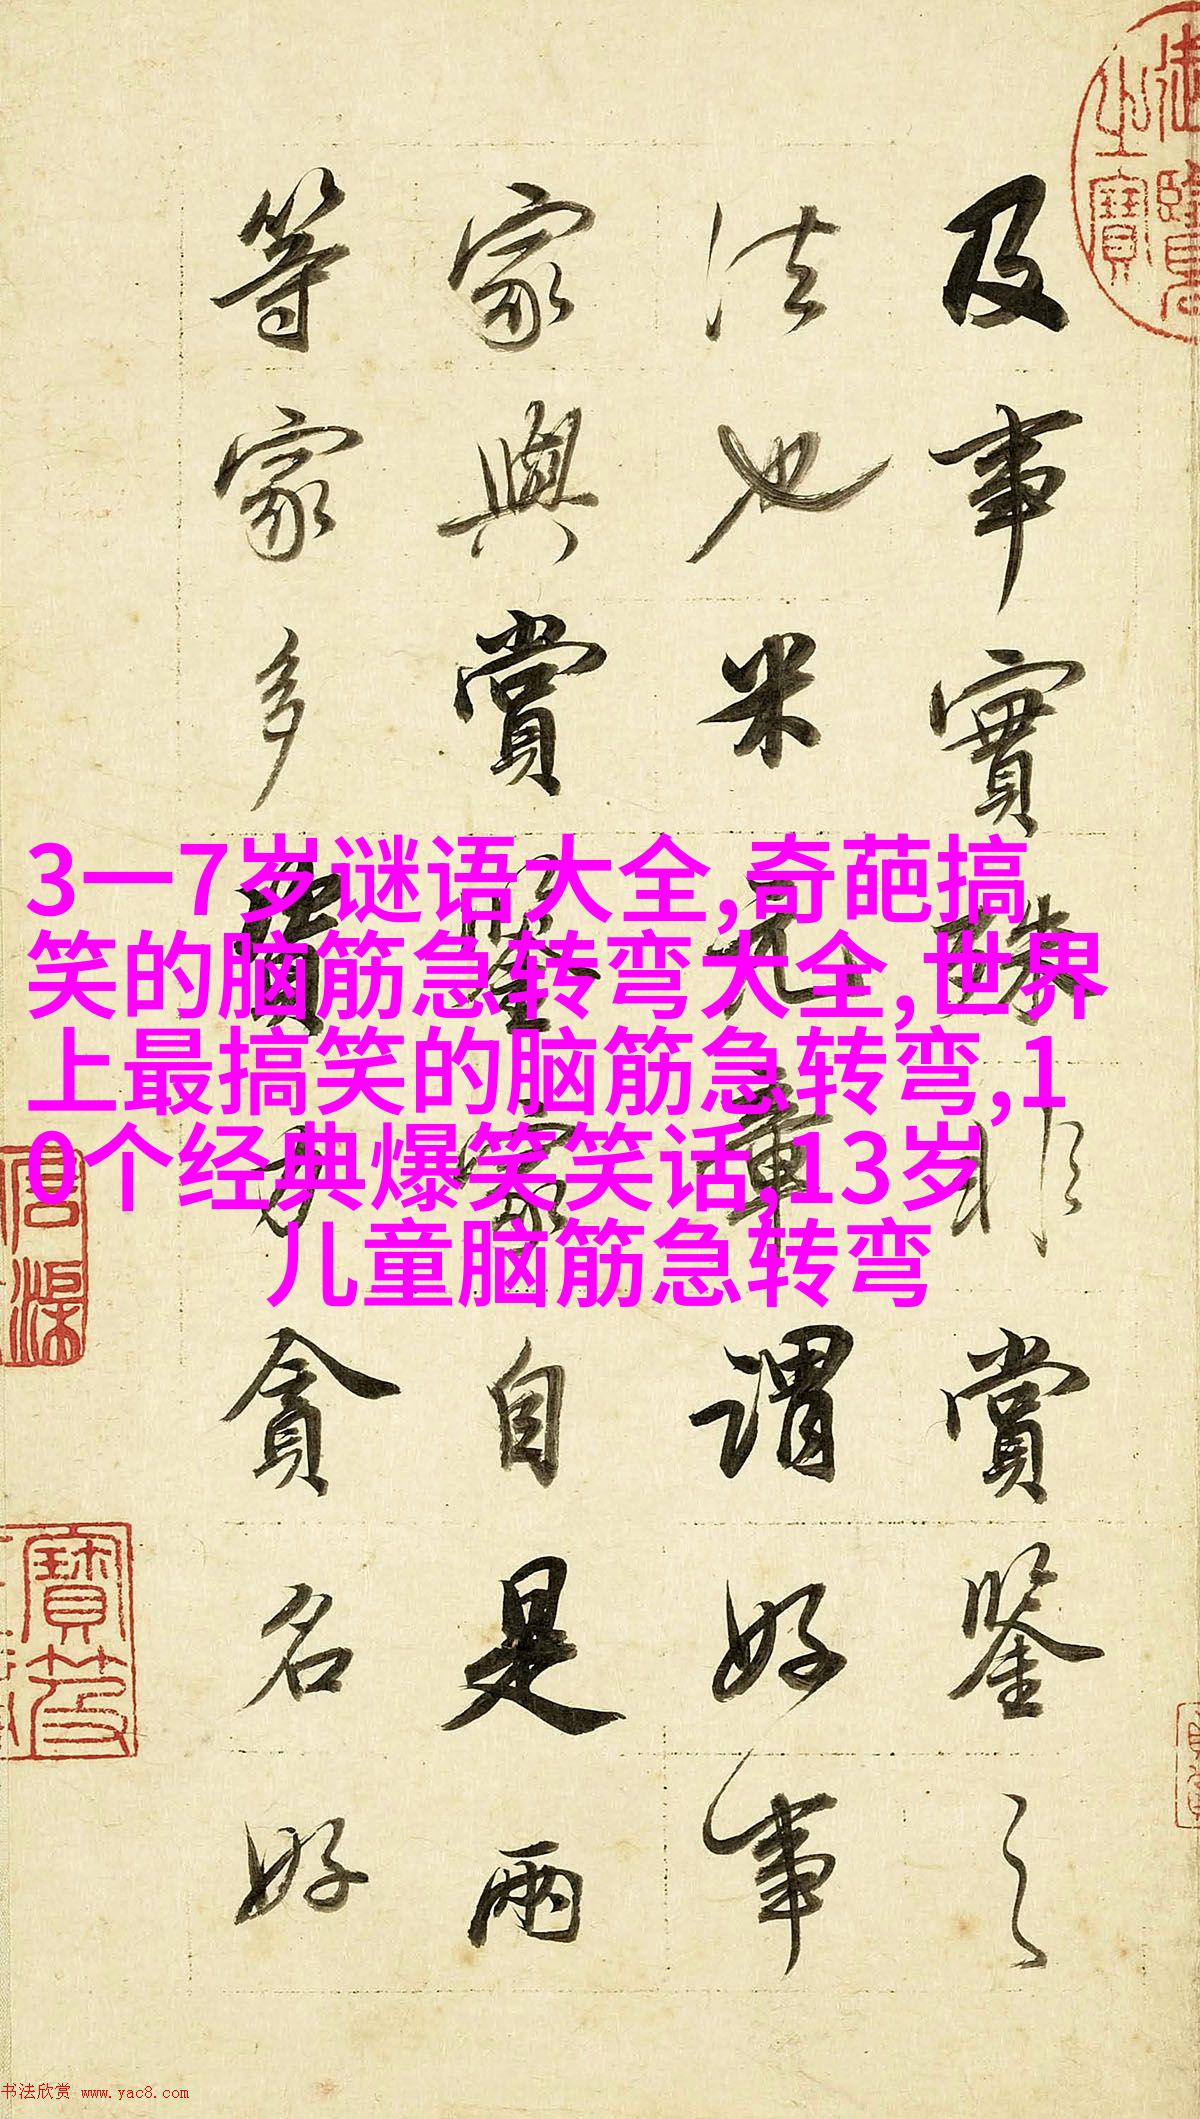 及事實殊非賞鑒之
法也米元章謂好事
家與賞鑒家自是兩
等家多資力貪名好
3一7岁谜语大全,奇葩搞
笑的脑筋急转弯大全,世界
上最搞笑的脑筋急转弯,1
0个经典爆笑笑话,13岁
儿童脑筋急转弯
书法欣赏 www.yac8.com